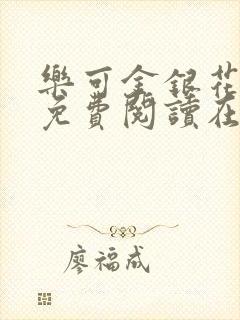 樂可金銀花
免費閱讀在
廖福成